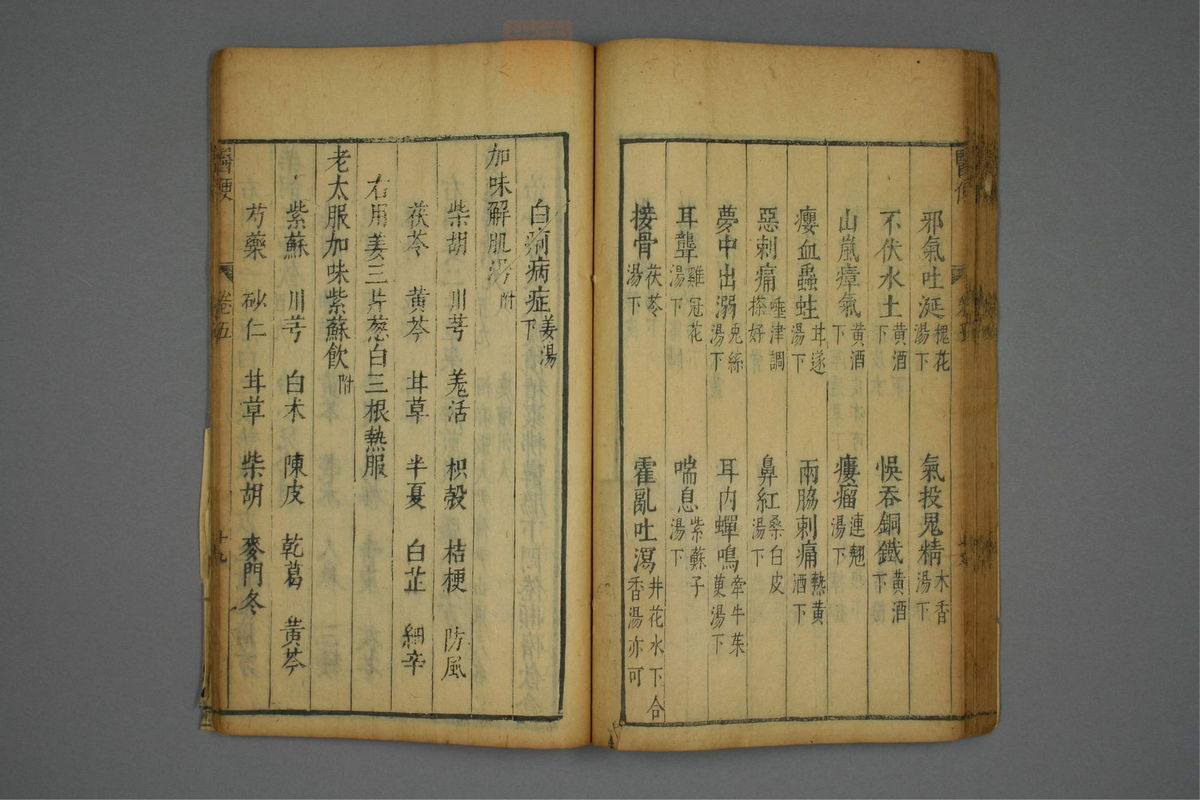 邪氣吐涎槐花湯下　氣投鬼精木香湯下
不伏水土黃酒下　悞吞銅鐵黃酒下
山嵐瘴氣黃酒下　瘻瘤連翹湯下
癭血蟲蛀甘遂湯下　兩脇刺痛熱黃酒下
惡刺痛唾津調搽好　鼻紅桑白皮湯下
夢中出溺兔絲湯下　耳內蟬鳴牽牛茱萸湯下
耳聾雞冠花湯下　喘息紫蘇子湯下
接骨茯苓湯下　霍亂吐瀉井花水下合香湯亦可
白病症姜湯下
加味解肌湯附
柴胡　川芎　羌活　枳殼　桔梗　防風
茯苓　黃芩　甘草　半夏　白芷　細辛
右用姜三片葱白三根熱服
老太服加味紫蘇飲附
紫蘇　川芎　白朮　陳皮　乾葛　黃芩
芍藥　砂仁　甘草　柴胡　麥門冬
醫便　卷五　十九